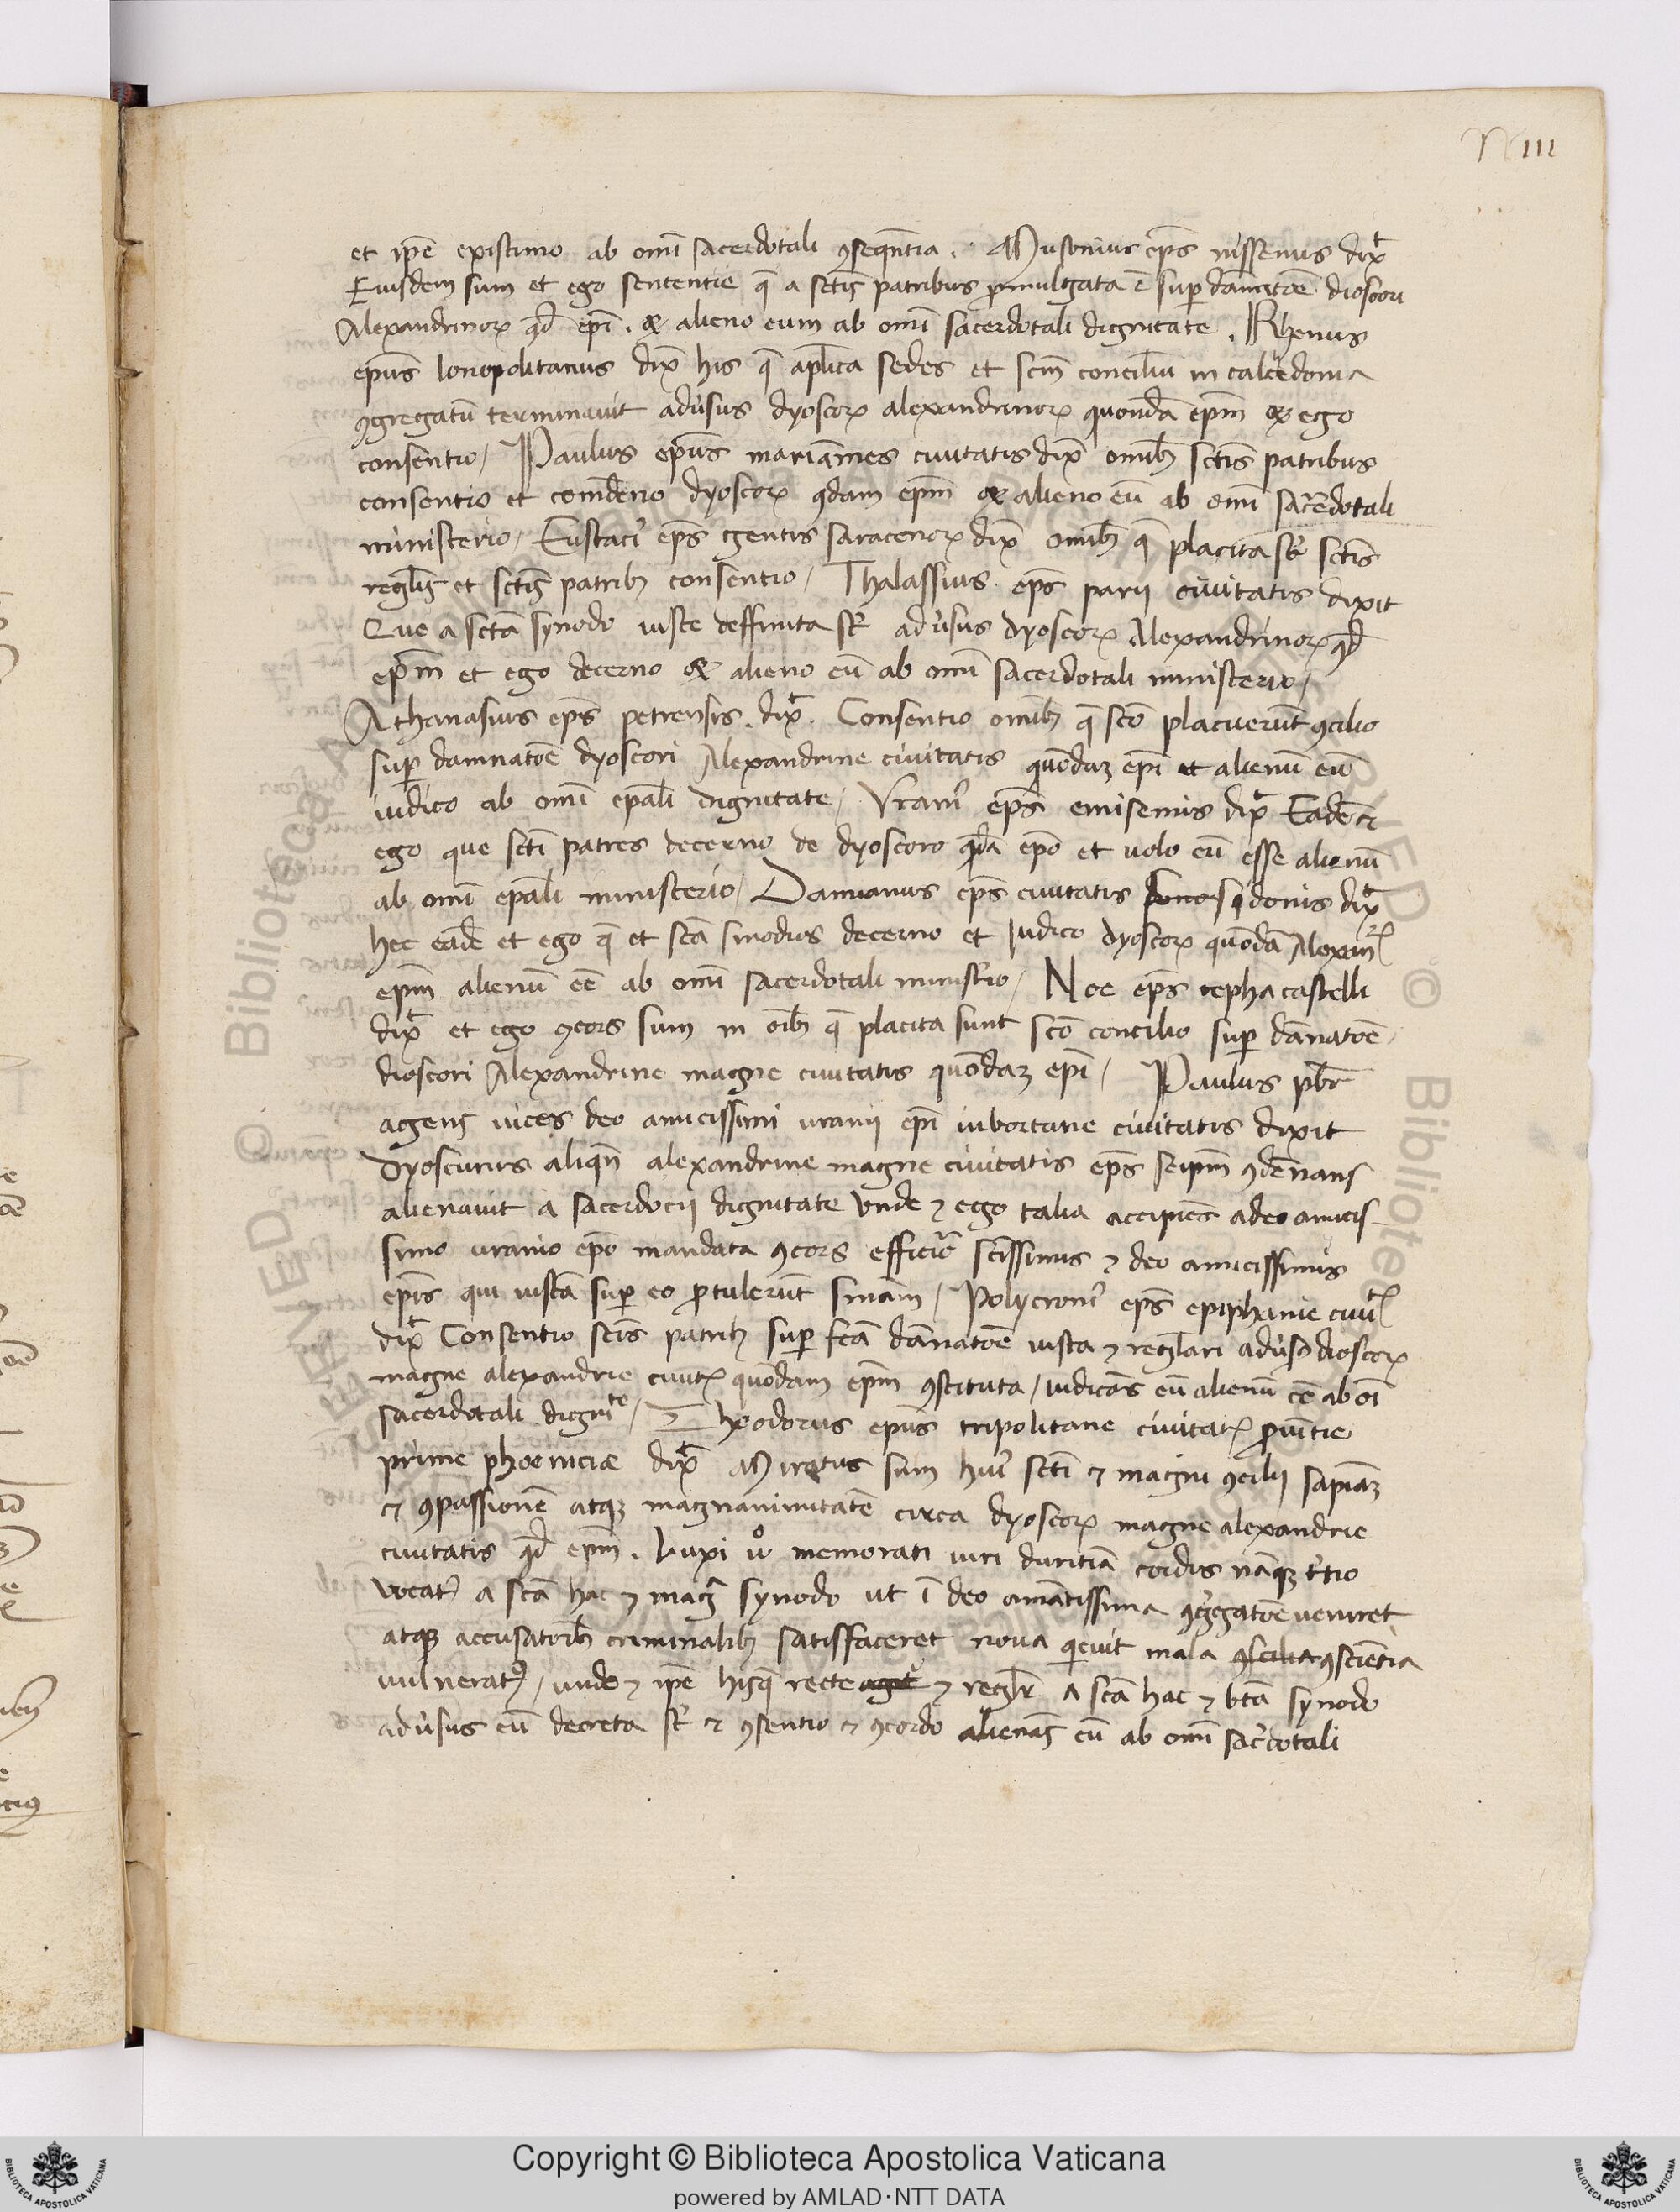 N III
et ip̄e existimo ab om̄i sacerdotali ꝯseqn̄tia. Musonius ep̄s nissenus dix̄t
Eiusdem sum et ego sententie q̄ a sc̄tis patribus promulgata ē sup dānatōe dioscori
Alexandrinoꝝ qd̄ ep̄i. & alieno eum ab om̄i sacerdotali dignitate. Rhenus
ep̄us Ionopolitanus dix̄ his q̄ ap̄lica sedes et sc̄m conciliū in calcedonia
ꝯgregatū terminavit adūsus dyoscoꝝ alexandrinoꝝ quondā ep̄m & ego
consentio / Paulus ep̄us mariāmes civitatis dix̄ om̄ibꝫ sc̄tis patribus
consentio et comdēno dyoscoꝝ qdam ep̄m & alieno eū ab om̄i sacerdotali
ministerio / Eustaci᷒ ep̄s gentis saracenoꝝ dix̄ om̄ibꝫ q̄ placita st̄ sc̄tis
regl̄is et sc̄tis patribꝫ consentio / Thalassius ep̄s parii civitatis dixit
Que a sc̄ta synodo iuste deffinita st̄ adūsus dyoscoꝝ Alexandrinoꝝ qd̄
ep̄m et ego decerno & alieno eū ab om̄i sacerdotali ministerio /
Athanasius ep̄s petrensis. dix̄t. Consentio om̄ibꝫ q̄ sc̄o placuerūt ꝯcilio
sup damnatōe dyoscori Alexandrine civitatis quōdaꝫ ep̄i et alienū eū
iudico ab om̄i ep̄ali dignitate / Urani᷒ ep̄s emisenus dix̄t Eadē &
ego que sc̄ti patres decerno de dyoscoro qd̄a ep̄o et volo eū esse alienū
ab om̄i ep̄ali ministerio / Damianus ep̄s civitatis sidonis dix̄t
hec eadē et ego q̄ et sc̄a sinodus decerno et Iudico dyoscoꝝ quōdā Alexān
ep̄m alienū eē ab om̄i sacerdotali minist̄io / Noe ep̄s cepha castelli
dix̄t et ego ꝯcors sum in oībꝫ q̄ placita sunt sc̄o concilio sup dānatōe
dioscori Alexandrine magne civitatis quōdaꝫ ep̄i / Paulus pb̄r
agens vices deo amicissimi uranii ep̄i iubortane civitatis dixit
Dyoscurus aliqn̄ alexandrine magne civitatis ep̄s seip̄m ꝯdēnans
alienavit a sacerdocii dignitate Unde ⁊ ego talia accipiēs a deo amicis
simo uranio ep̄o mandata ꝯcors efficior sc̄issimus ⁊ deo amicissimis
ep̄is qui iustā sup eo ꝓtulerūt sn̄iam / Polycroni᷒ ep̄s epiphanie civit
dix̄t Consentio sc̄is patribꝫ sup fc̄ā dānatōe iusta ⁊ regl̄ari adūso dioscoꝝ
magne alexandrie civitꝭ quōdam ep̄m ꝯstituta / iudicās eū alienū eē ab oī
sacerdotali digni^te / Theodorus ep̄us tripolitane civitatꝭ ꝓvī̄tie
prime phoeniciæ dix̄t Miratus sum hui᷒ sc̄ti ⁊ magni ꝯcilii sapiāꝫ
⁊ ꝯpassionē atqꝫ magnanimitatē circa dyoscoꝝ magne alexandrie
civitatis qd̄ ep̄m. Luxi v̊ memorati viri duritiā cordis nāqꝫ t̄tio
vocat᷒ a sc̄a hac ⁊ mag̃ synodo ut ī deo amātissima ꝯg̃gatōe veniret
atqꝫ accusatoribꝫ criminalibꝫ satisfaceret nova qͥevit mala ꝯscientia
vulnerat᷒ / unde ⁊ ip̄e hisq̄ recte ⁊ reglr̄ a sc̄a hac ⁊ bt̄a synodo
adūsus eū decreta st̄ ⁊ ꝯsentio ⁊ ꝯcordo alienās eū ab om̄i sac̄dotali
Copyright © Biblioteca Apostolica Vaticana
powered by AMLAD·NTT DATA